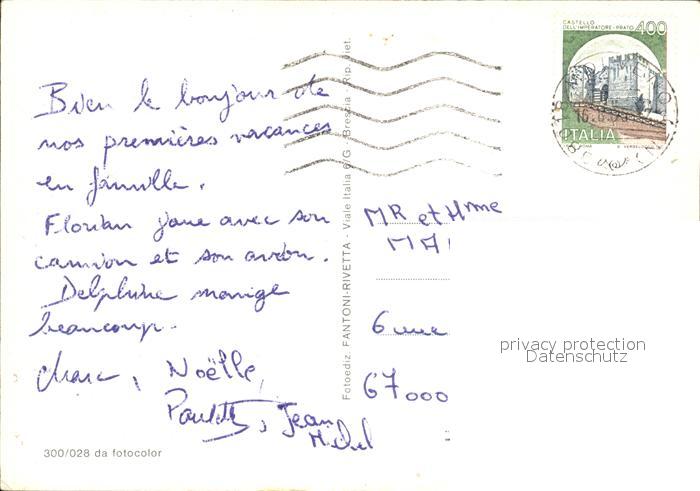 Bien le bonjour de
nos premières vacances
en famille.
Florian joue avec son
camion et son avion.
Delphine mange
beaucoup.
Marc, Noëlle,
Paulette, Jean
Michel
300/028 da fotocolor
Fotoediz. FANTONI-RIVETTA - Viale Italia 6/G - Brescia - Rip. viet.
CASTELLO
DELL'IMPERATORE - PRATO 400
ITALIA
ROMA
MR et Mme
MAI
6 rue
67000
privacy protection
Datenschutz